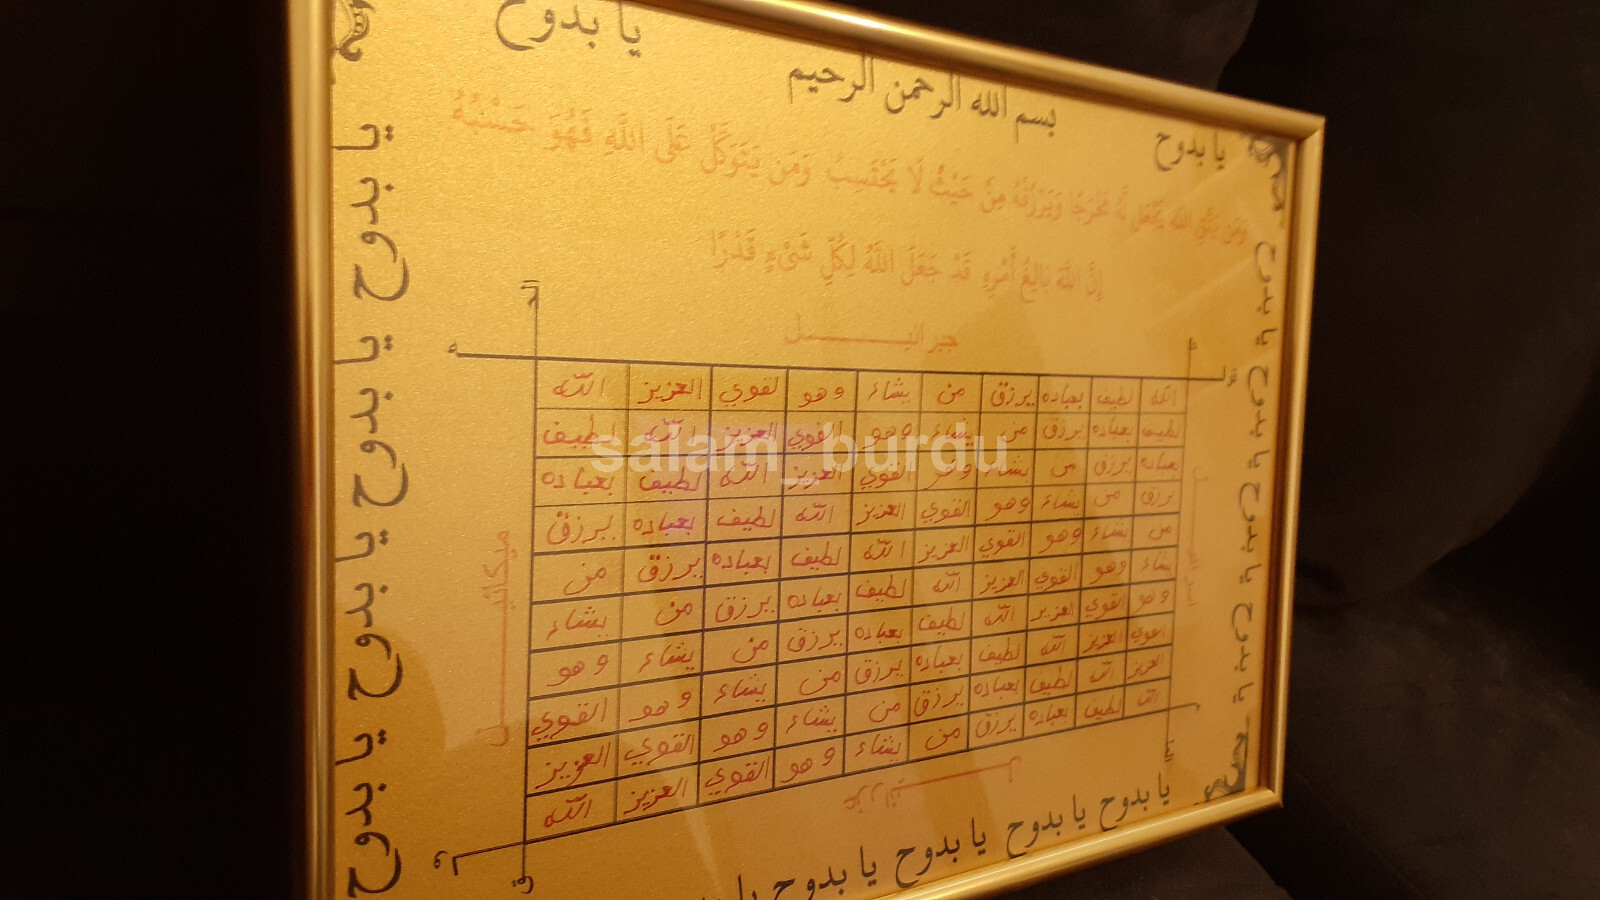 يا بدوح
بسم الله الرحمن الرحيم
يا بدوح
وَمَن يَتَّقِ اللَّهَ يَجْعَل لَّهُ مَخْرَجًا وَيَرْزُقْهُ مِنْ حَيْثُ لَا يَحْتَسِبُ وَمَن يَتَوَكَّلْ عَلَى اللَّهِ فَهُوَ حَسْبُهُ
إِنَّ اللَّهَ بَالِغُ أَمْرِهِ قَدْ جَعَلَ اللَّهُ لِكُلِّ شَيْءٍ قَدْرًا
جبرائيـــــل
الله لطيف بعباده يرزق من يشاء وهو لقوي العزيز الله
لطيف بعباده يرزق من يشاء وهو القوي العزيز الله لطيف
بعباده يرزق من يشاء وهو القوي العزيز الله لطيف بعباده
يرزق من يشاء وهو القوي العزيز الله لطيف بعباده يرزق
من يشاء وهو القوي العزيز الله لطيف بعباده يرزق من
يشاء وهو القوي العزيز الله لطيف بعباده يرزق من يشاء
وهو القوي العزيز الله لطيف بعباده يرزق من يشاء وهو
القوي العزيز الله لطيف بعباده يرزق من يشاء وهو القوي
العزيز الله لطيف بعباده يرزق من يشاء وهو القوي العزيز
الله لطيف بعباده يرزق من يشاء وهو القوي العزيز الله
salam_burdu
ميكائيـــــل
عزرائيـــــل
يا بدوح يا بدوح يا بدوح يا بدوح
يا بدوح يا بدوح يا بدوح يا بدوح
يا بدوح يا بدوح يا بدوح يا بدوح